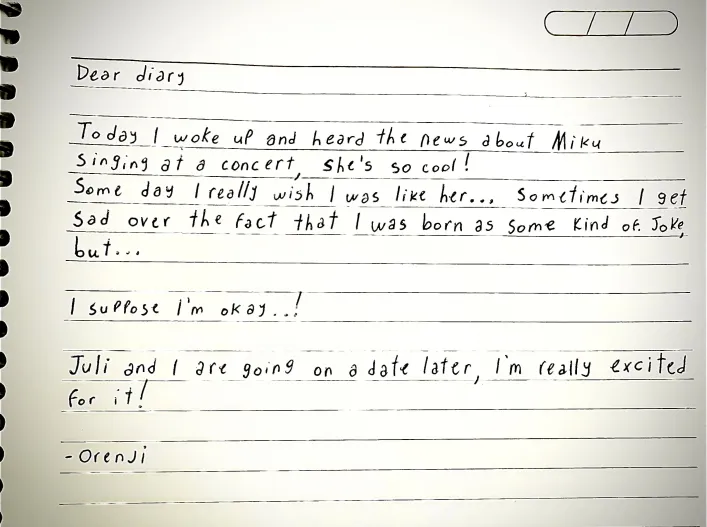 Dear diary
Today I woke up and heard the news about Miku
Singing at a concert, she's so cool!
Some day I really wish I was like her... Sometimes I get
Sad over the fact that I was born as some kind of Joke,
but...
I suppose I'm okay..!
Juli and I are going on a date later, I'm really excited
for it!
-Orenji